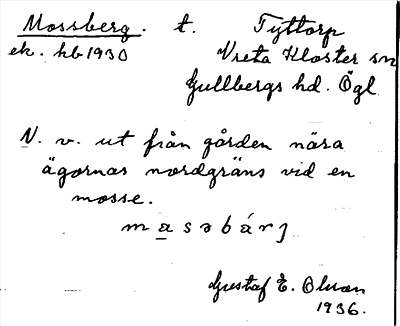 Mossberg. t. Tyttorp
ek. hb 1930 Vreta Kloster sn
Gullbergs hd. Ögl
N. v. ut från gården nära
ägornas nordgräns vid en
mosse.
m a s ə b á r j
Gustaf E. Olson
1936.